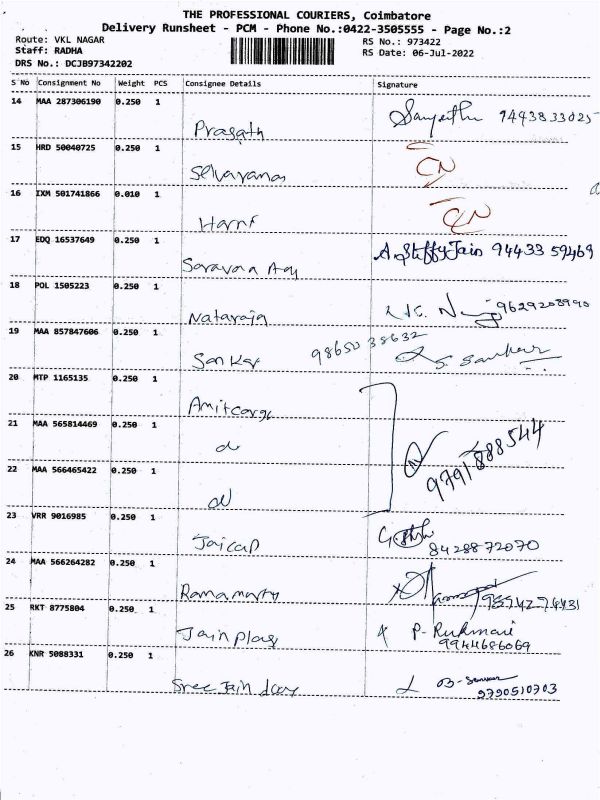 THE PROFESSIONAL COURIERS, Coimbatore
Delivery Runsheet - PCM - Phone No.:0422-3505555 - Page No.:2
Route: VKL NAGAR
Staff: RADHA
DRS No.: DCJB97342202
RS No.: 973422
RS Date: 06-Jul-2022
S No Consignment No Weight PCS Consignee Details Signature
14 MAA 287306190 0.250 1 Prasath 9443833025
15 HRD 50040725 0.250 1 CN
16 IXM 501741866 0.010 1 CN
17 EDQ 16537649 0.250 1 A. Steffy Jain 94433 59469
18 POL 1505223 0.250 1 Nataraja 9629208990
19 MAA 857847606 0.250 1 Sankar 98650 38632 S. Sankar
20 MTP 1165135 0.250 1 Amitcargo
21 MAA 565814469 0.250 1 9791888544
22 MAA 566465422 0.250 1
23 VRR 9016985 0.250 1 Jaicap 8428872070
24 MAA 566264282 0.250 1 Ramamurty
25 RKT 8775804 0.250 1 Jain plas P. Rukmani 9944686069
26 KNR 5088331 0.250 1 Sree Jain 9790510703